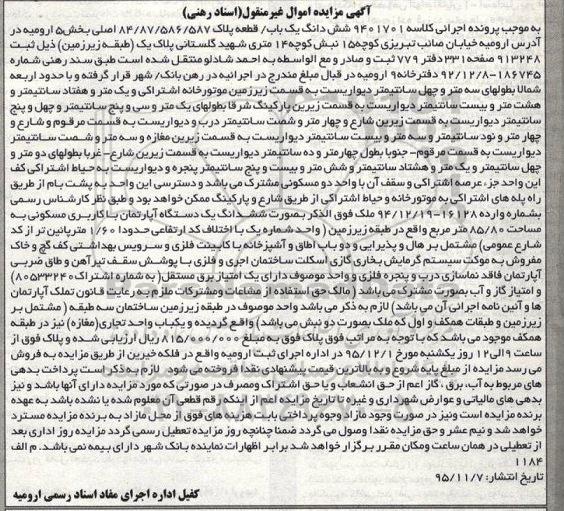 آگهی مزایده اموال غیرمنقول(اسناد رهنی)
به موجب پرونده اجرائی کلاسه ۹۴۰۱۷۰۱ شش دانگ یک باب/ قطعه پلاک ۸۴/۸۷/۵۸۶/۵۸۷ اصلی بخش۵ ارومیه در
آدرس ارومیه خیابان صائب تبریزی کوچه۱۵ نبش کوچه۱۴ متری شهید گلستانی پلاک یک (طبقه زیرزمین) ذیل ثبت
۹۱۳۲۴۸ صفحه ۳۳۱ دفتر ۷۷۹ ثبت و صادر و مع الواسطه به احمد شادلو منتقل شده است طبق سند رهنی شماره
۱۸۶۷۴۵-۹۲/۱۲/۸ دفترخانه۹ ارومیه در قبال مبلغ مندرج در اجرائیه در رهن بانک/ شهر قرار گرفته و با حدود اربعه
شمالا بطولهای سه متر و چهل سانتیمتر دیواریست به قسمت زیرزمین موتورخانه اشتراکی و یک متر و هفتاد سانتیمتر و
هشت متر و بیست سانتیمتر دیواریست به قسمت زیرین پارکینگ شرقا بطولهای یک متر و سی و پنج سانتیمتر و چهل و پنج
سانتیمتر دیواریست به قسمت زیرین شارع و چهار متر و شصت سانتیمتر درب و دیواریست به قسمت مرقوم و شارع و
چهار متر و نود سانتیمتر و سه متر و بیست سانتیمتر دیواریست به قسمت زیرین مغازه و سه متر و شصت سانتیمتر
دیواریست به قسمت مرقوم- جنوبا بطول چهارمتر و ده سانتیمتر دیواریست به قسمت زیرین شارع- غربا بطولهای دو متر و
چهل سانتیمتر و یک متر و هشتاد سانتیمتر و شش متر و بیست و پنج سانتیمتر پنجره و دیواریست به حیاط اشتراکی کف
این واحد جزء عرصه اشتراکی و سقف آن با واحد دو مسکونی مشترک می باشد و دسترسی این واحد به پشت بام از طریق
راه پله های اشتراکی به موتورخانه و حیاط اشتراکی از طریق شارع و پارکینگ ممکن خواهد بود و طبق نظر کارشناس رسمی
بشماره وارده ۱۶۱۲۸-۹۴/۱۲/۱۹ ملک فوق الذکر بصورت ششدانگ یک دستگاه آپارتمان با کاربری مسکونی به
مساحت ۸۵/۸۰ متر مربع واقع در طبقه زیرزمین ( واحد شماره یک با اختلاف کد ارتفاعی حدودا ۱/۶۰ متر پایین تر از کد
شارع عمومی) مشتمل بر هال و پذیرایی و دو باب اطاق و آشپزخانه با کابینت فلزی و سرویس بهداشتی کف گچ و خاک
مفروش به موکت سیستم گرمایش بخاری گازی اسکلت ساختمان آجری و فلزی با پوشش سقف تیرآهن و طاق ضربی
آپارتمان فاقد نماسازی درب و پنجره فلزی و واحد موصوف دارای یک امتیاز برق مستقل( به شماره اشتراک ۸۰۵۳۳۲۴۰)
و امتیاز گاز و آب بصورت مشترک می باشد ( مالک حق استفاده از مشاعات و مشترکات ملزم به رعایت قانون تملک آپارتمان
ها و آئین نامه اجرائی آن می باشد) لازم به ذکر می باشد واحد موصوف در طبقه زیرزمین ساختمان سه طبقه ( مشتمل بر
زیرزمین و طبقات همکف و اول که ملک بصورت دو نبش می باشد) واقع گردیده و یکباب واحد تجاری(مغازه) نیز در طبقه
همکف موجود می باشد که با توجه به مراتب فوق پلاک فوق به مبلغ ۸۱۵/۰۰۰/۰۰۰ ریال ارزیابی شده و پلاک فوق از
ساعت ۹الی ۱۲ روز یکشنبه مورخ ۹۵/۱۲/۱ در اداره اجرای ثبت ارومیه واقع در فلکه خیرین از طریق مزایده به فروش
می رسد مزایده از مبلغ پایه شروع و به بالاترین قیمت پیشنهادی نقدا فروخته می شود. لازم به ذکر است پرداخت بدهی
های مربوط به آب، برق ، گاز اعم از حق انشعاب و یا حق اشتراک ومصرف در صورتی که مورد مزایده دارای آنها باشد و نیز
بدهی های مالیاتی و عوارض شهرداری و غیره تا تاریخ مزایده اعم از اینکه رقم قطعی آن معلوم شده یا نشده باشد به عهده
برنده مزایده است ونیز در صورت وجود مازاد وجوه پرداختی بابت هزینه های فوق از محل مازاد به برنده مزایده مسترد
خواهد شد و نیم عشر و حق مزایده نقدا وصول می گردد ضمنا چنانچه روز مزایده تعطیل رسمی گردد مزایده روز اداری بعد
از تعطیلی در همان ساعت ومکان مقرر برگزار خواهد شد برابر اظهارات نماینده بانک شهر دارای بیمه نمی باشد. م الف
۱۱۸۴
تاریخ انتشار: ۹۵/۱۱/۷
کفیل اداره اجرای مفاد اسناد رسمی ارومیه